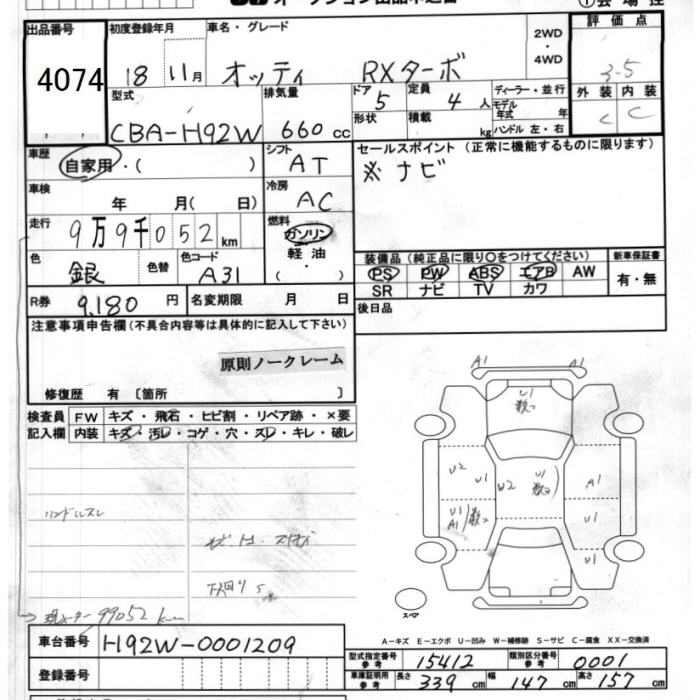 オークション出品申込書
①会場控
出品番号
4074
初度登録年月
18 11月
車名・グレード
オッティ RXターボ
2WD
・
4WD
評価点
3.5
外装 内装
C C
型式
CBA-H92W
排気量
660 cc
ドア 5
形状
定員 4 人
積載 kg
ディーラー・並行
モデル年式 年
ハンドル 左・右
車歴
自家用・( )
シフト
AT
セールスポイント (正常に機能するものに限ります)
※ナビ
車検
年 月( 日)
冷房
AC
走行
9万9千052km
燃料
ガソリン
軽油
( )
色
銀
色替
色コード
A31
装備品 (純正品に限り○をつけてください)
新車保証書
PS PW ABS エアB AW
SR ナビ TV カワ
有・無
R券 9,180 円
名変期限 月 日
後日品
注意事項申告欄(不具合内容等は具体的に記入して下さい)
原則ノークレーム
修復歴 有 〔箇所 〕
検査員記入欄
FW キズ・飛石・ヒビ割・リペア跡・×要
内装 キズ・汚レ・コゲ・穴・スレ・キレ・破レ
ハンドルスレ
現メーター 99052 km
A1 A1
U1
数コ
U2 U1 U2 U1
数コ
A1
U1
A1
数コ
U1
U1
スペア
A-キズ E-エクボ U-凹み W-補修跡 S-サビ C-腐食 XX-交換済
車台番号 H92W-0001209
登録番号
型式指定番号
参考
15412
類別区分番号
参考
0001
車庫証明用
参考
長さ 339 cm 幅 147 cm 高さ 157 cm